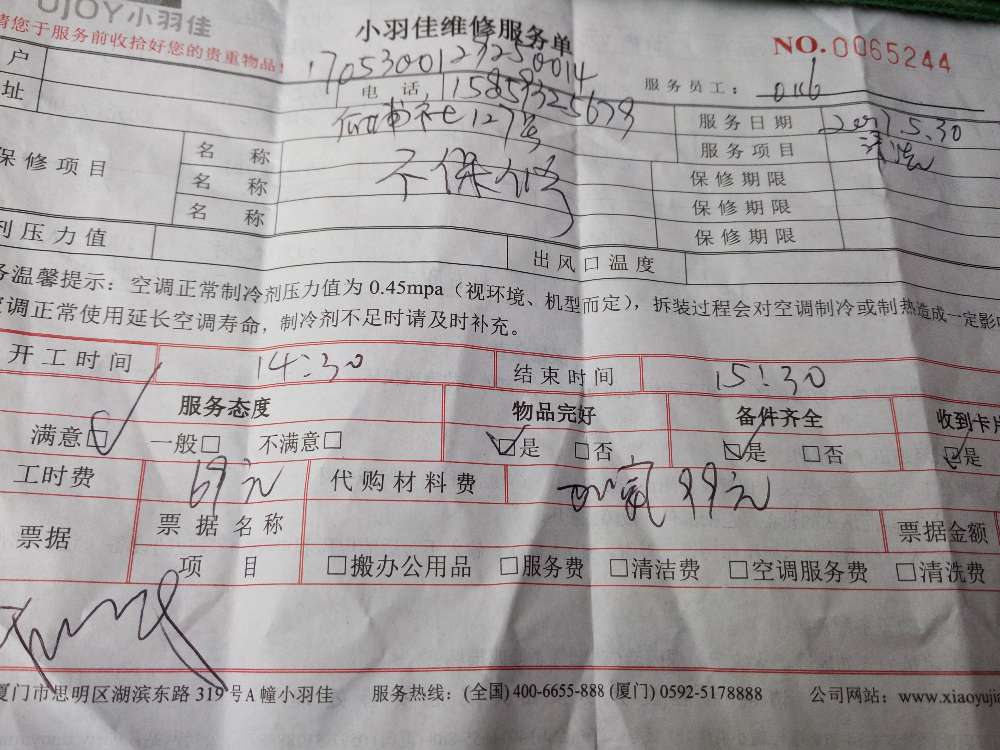 UJOY小羽佳
请您于服务前收拾好您的贵重物品!
小羽佳维修服务单
NO.0065244
1705300129250014
户
电 话 15859325679
服务员工: 0116
址
127号
服务日期 2017.5.30
保修项目
名 称
不保修
服务项目 清洗
名 称
保修期限
名 称
保修期限
保修期限
剂压力值
出风口温度
务温馨提示:空调正常制冷剂压力值为 0.45mpa(视环境、机型而定),拆装过程会对空调制冷或制热造成一定影
空调正常使用延长空调寿命,制冷剂不足时请及时补充。
开工时间 14:30 结束时间 15:30
服务态度 物品完好 备件齐全 收到卡片
满意☑ 一般□ 不满意□ ☑是 □否 ☑是 □否 ☑是
工时费 69元 代购材料费 加氟 99元
票据 票据名称 票据金额
项 目 □搬办公用品 □服务费 □清洁费 □空调服务费 □清洗费
厦门市思明区湖滨东路 319 号A 幢小羽佳 服务热线:(全国) 400-6655-888 (厦门) 0592-5178888 公司网站:www.xiaoyujia